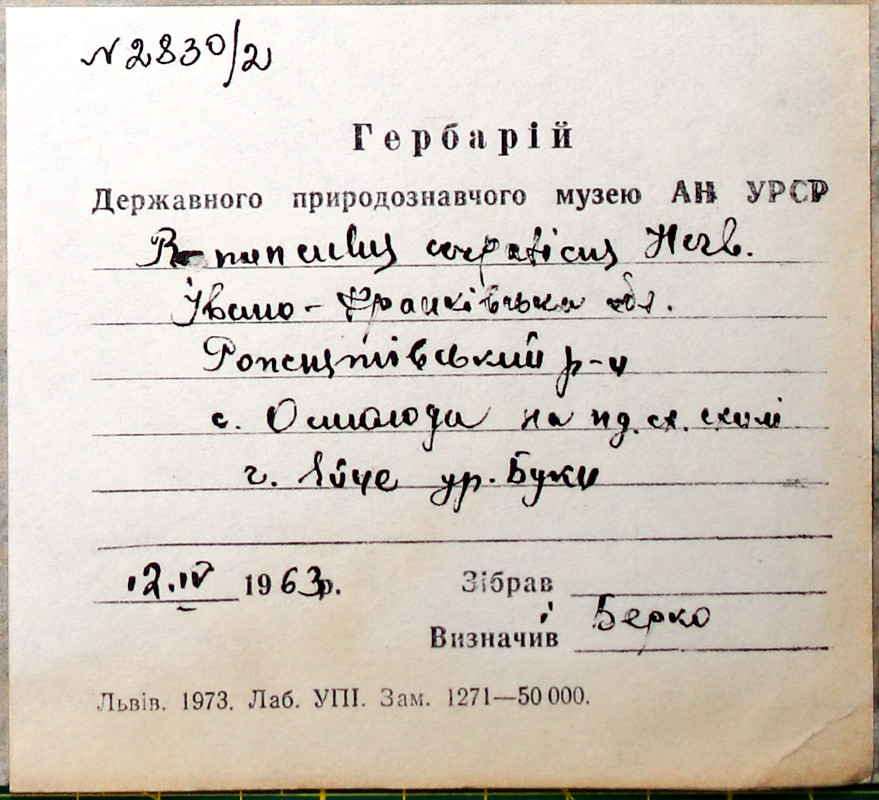 N 2830/2
Гербарій
Державного природознавчого музею АН УРСР
Ranunculus carpaticus Herb.
Івано-Франківська обл.
р-н
с. Осмолода на пд. сх. схилі
г. Яйце ур. Буки
12.IV 1963р. Зібрав
і Берко
Визначив
Львів. 1973. Лаб. УПІ. Зам. 1271—50 000.